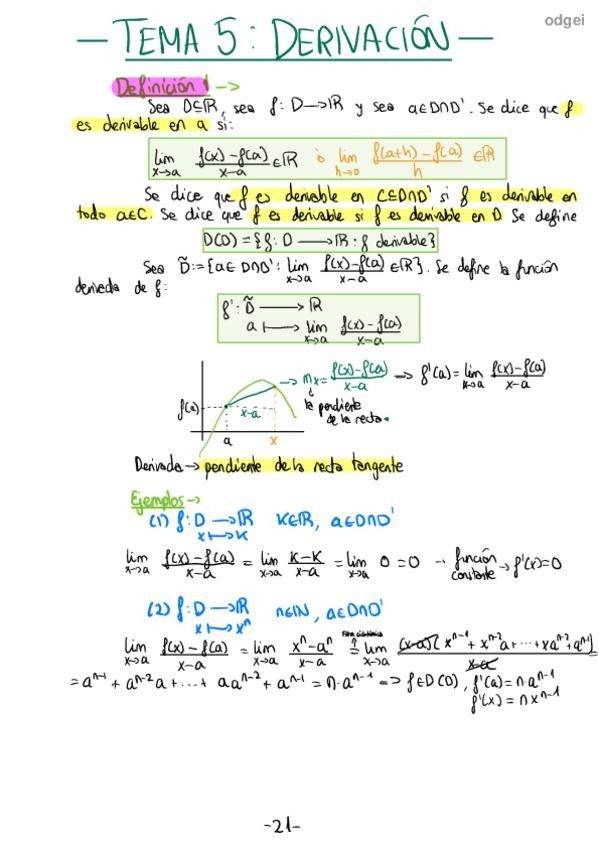 odgei
— TEMA 5: DERIVACIÓN —
Definición 1 ->
Sea D⊆ℝ, sea f: D→ℝ y sea a∈D∩D'. Se dice que f
es derivable en a si:
lim x→a (f(x)-f(a))/(x-a) ∈ℝ ó lim h→0 (f(a+h)-f(a))/h ∈ℝ
Se dice que f es derivable en C⊆D∩D' si f es derivable en
todo a∈C. Se dice que f es derivable si f es derivable en D. Se define
D(D) = {f: D → ℝ : f derivable}
Sea D̃:={a∈ D∩D': lim x→a (f(x)-f(a))/(x-a) ∈ℝ}. Se define la función
derivada de f:
f': D̃ → ℝ
a ↦ lim x→a (f(x)-f(a))/(x-a)
→ mx = (f(x)-f(a))/(x-a) → f'(a) = lim x→a (f(x)-f(a))/(x-a)
la pendiente
de la recta.
f(a)
x-a
a x
Derivada → pendiente de la recta tangente
Ejemplos→
(1) f: D → ℝ K∈ℝ, a∈D∩D'
x ↦ K
lim x→a (f(x)-f(a))/(x-a) = lim x→a (K-K)/(x-a) = lim x→a 0 = 0 → función constante → f'(x)=0
(2) f: D → ℝ n∈ℕ, a∈D∩D'
x ↦ xⁿ
lim x→a (f(x)-f(a))/(x-a) = lim x→a (xⁿ-aⁿ)/(x-a) = lim x→a ((x-a)(xⁿ⁻¹+xⁿ⁻²a+...+xaⁿ⁻²+aⁿ⁻¹))/(x-a)
= aⁿ⁻¹+aⁿ⁻²a+...+aaⁿ⁻²+aⁿ⁻¹ = n·aⁿ⁻¹ => f∈D(D), f'(a)=n·aⁿ⁻¹
f'(x) = nxⁿ⁻¹
-21-